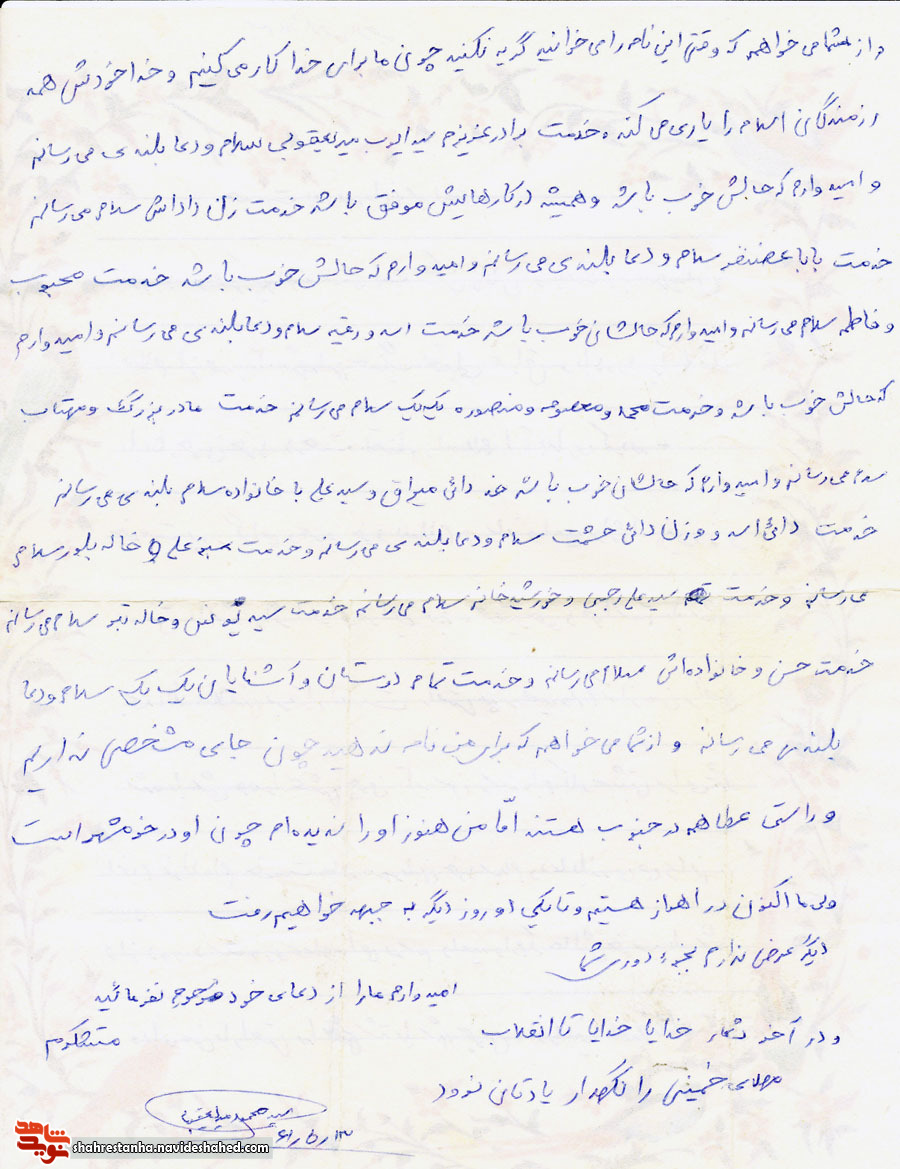 و از شما می خواهم که وقتی این نامه را می خوانید گریه نکنید چون ما برای خدا کار می کنیم و خدا خودش همه
رزمندگان اسلام را یاری می کند خدمت برادر عزیزم سید ایوب میریعقوبی سلام و دعا بلندی می رسانم
و امیدوارم که حالش خوب باشد و همیشه در کارهایش موفق باشد خدمت زن داداش سلام می رسانم
خدمت بابا غضنفر سلام و دعا بلندی می رسانم و امیدوارم که حالش خوب باشد خدمت محبوب
و فاطمه سلام می رسانم و امیدوارم که حالشان خوب باشد خدمت اسد و رقیه سلام و دعا بلندی می رسانم و امیدوارم
که حالش خوب باشد و خدمت محمد و معصومه و منصوره یک یک سلام می رسانم خدمت مادر بزرگ و مهتاب
سلام می رسانم و امیدوارم که حالشان خوب باشد دائی میراق و سید علی با خانواده سلام بلندی می رسانم
خدمت دائی اسد و زن دائی حشمت سلام و دعا بلندی می رسانم و خدمت علی و خاله بلور سلام
می رسانم و خدمت سید علی رجبی و خورشید خانم سلام می رسانم خدمت سید یونس و خاله سلام می رسانم
خدمت حسن و خانواده اش سلام می رسانم و خدمت تمام دوستان و آشنایان یک یک سلام و دعا
بلندی می رسانم و از شما می خواهم که برای من نامه ندهید چون جای مشخصی نداریم
و راستی عطا هم در جنوب هستند امّا من هنوز او را ندیده ام چون او در خرمشهر است
ولی ما اکنون در اهواز هستیم و تا یکی دو روز دیگر به جبهه خواهیم رفت
دیگر عرض ندارم بجزء دوری شما
امیدوارم ما را از دعای خود محروم نفرمائید
متشکرم
و در آخر شعار خدایا خدایا تا انقلاب
مهدی خمینی را نگهدار یادتان نرود
سید محمود میریعقوبی
۶۱/۵/۱۳
شاهد
نوید
shahrestanha.navideshahed.com